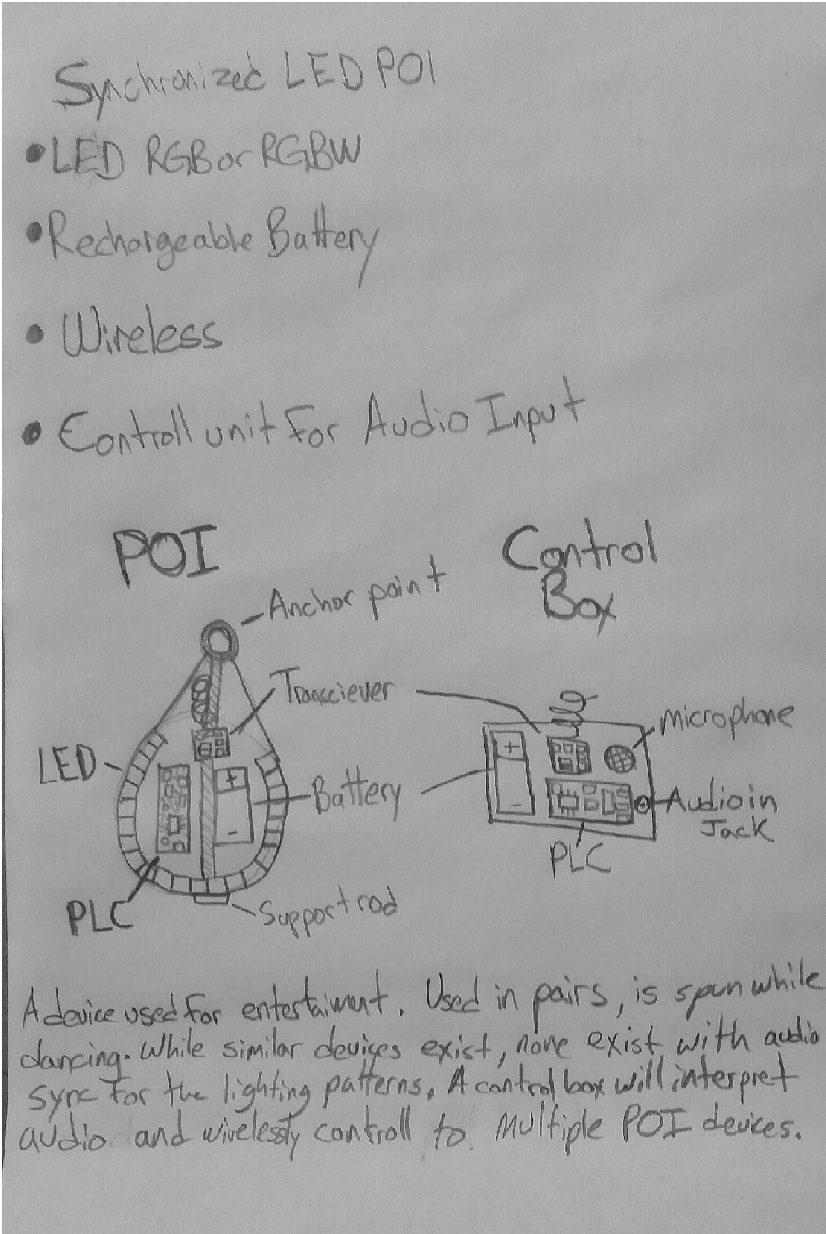 Synchronized LED POI
• LED RGB or RGBW
• Rechargeable Battery
• Wireless
• Controll unit For Audio Input
POI
Control
Box
Anchor point
Transciever
Microphone
LED
Battery
Audio in
Jack
PLC
PLC
Support rod
A device used for entertaiment. Used in pairs, is spun while
dancing. While similar devices exist, none exist with audio
sync for the lighting patterns. A control box will interpret
audio and wirelessly controll to multiple POI devices.